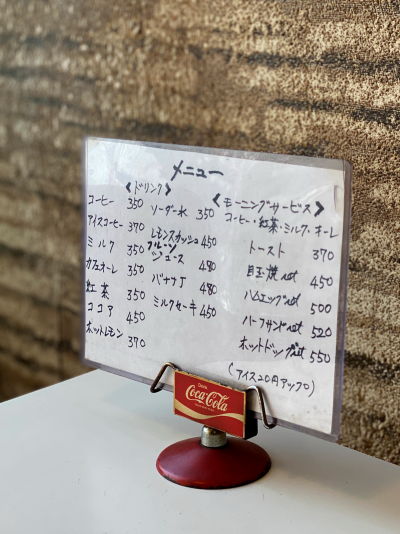 メニュー
〈ドリンク〉
コーヒー 350
アイスコーヒー 370
ミルク 350
カフェオーレ 350
紅茶 350
ココア 450
ホットレモン 370
ソーダー水 350
レモンスカッシュ 450
プルーン
ジュース 480
バナナJ 480
ミルクセーキ 450
〈モーニングサービス〉
コーヒー・紅茶・ミルク・オーレ
トースト 370
目玉焼set 450
ハムエッグset 500
ハーフサンドset 520
ホットドッグset 550
(アイス20円アップ)
Drink
Coca-Cola